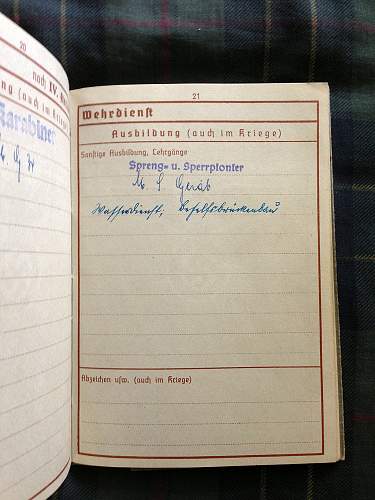 20
noch IV.
(auch im K
Karabiner
21
Wehrdienst
Ausbildung (auch im Kriege)
Sonstige Ausbildung, Lehrgänge
Spreng- u. Sperrpionier
M S Gerät
Wasserdienst, Behelfsbrückenbau
Abzeichen usw. (auch im Kriege)